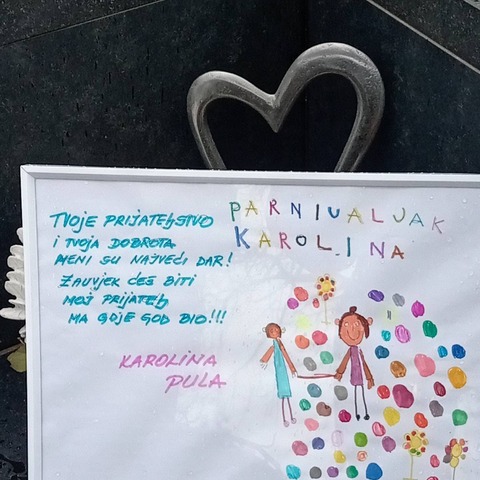 TVOJE PRIJATELJSTVO
I TVOJA DOBROTA
MENI SU NAJVEĆI DAR!
ZAUVJEK ĆEŠ BITI
MOJ PRIJATELJ
MA GDJE GOD BIO!!!
KAROLINA
PULA
PARNIUALJAK
KAROLINA